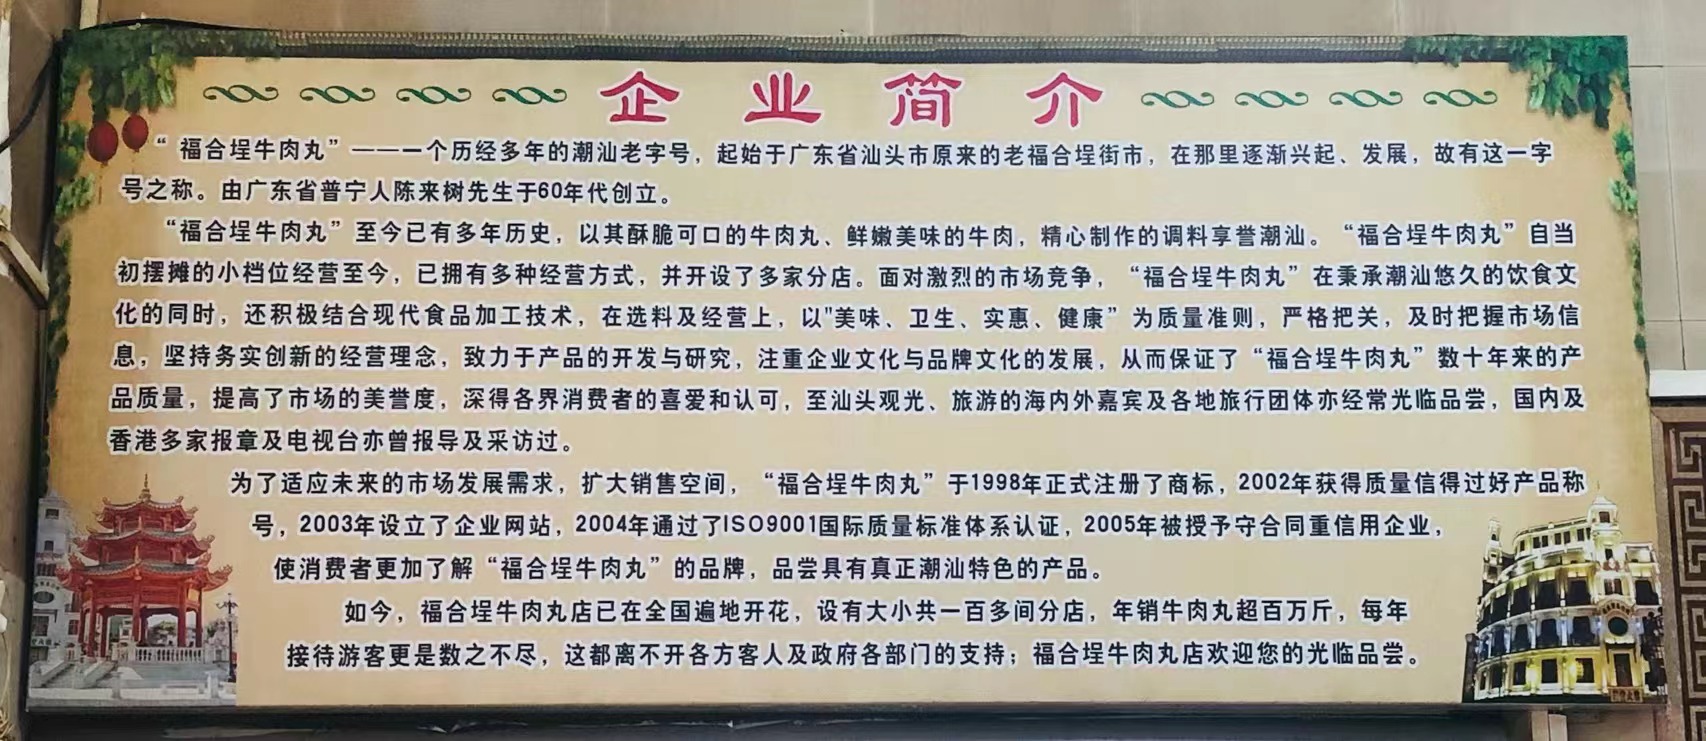 企业简介
“福合埕牛肉丸”——一个历经多年的潮汕老字号，起始于广东省汕头市原来的老福合埕街市，在那里逐渐兴起、发展，故有这一字
号之称。由广东省普宁人陈来树先生于60年代创立。
“福合埕牛肉丸”至今已有多年历史，以其酥脆可口的牛肉丸、鲜嫩美味的牛肉，精心制作的调料享誉潮汕。“福合埕牛肉丸”自当
初摆摊的小档位经营至今，已拥有多种经营方式，并开设了多家分店。面对激烈的市场竞争，“福合埕牛肉丸”在秉承潮汕悠久的饮食文
化的同时，还积极结合现代食品加工技术，在选料及经营上，以"美味、卫生、实惠、健康”为质量准则，严格把关，及时把握市场信
息，坚持务实创新的经营理念，致力于产品的开发与研究，注重企业文化与品牌文化的发展，从而保证了“福合埕牛肉丸”数十年来的产
品质量，提高了市场的美誉度，深得各界消费者的喜爱和认可，至汕头观光、旅游的海内外嘉宾及各地旅行团体亦经常光临品尝，国内及
香港多家报章及电视台亦曾报导及采访过。
为了适应未来的市场发展需求，扩大销售空间，“福合埕牛肉丸”于1998年正式注册了商标，2002年获得质量信得过好产品称
号，2003年设立了企业网站，2004年通过了ISO9001国际质量标准体系认证，2005年被授予守合同重信用企业，
使消费者更加了解“福合埕牛肉丸”的品牌，品尝具有真正潮汕特色的产品。
如今，福合埕牛肉丸店已在全国遍地开花，设有大小共一百多间分店，年销牛肉丸超百万斤，每年
接待游客更是数之不尽，这都离不开各方客人及政府各部门的支持；福合埕牛肉丸店欢迎您的光临品尝。